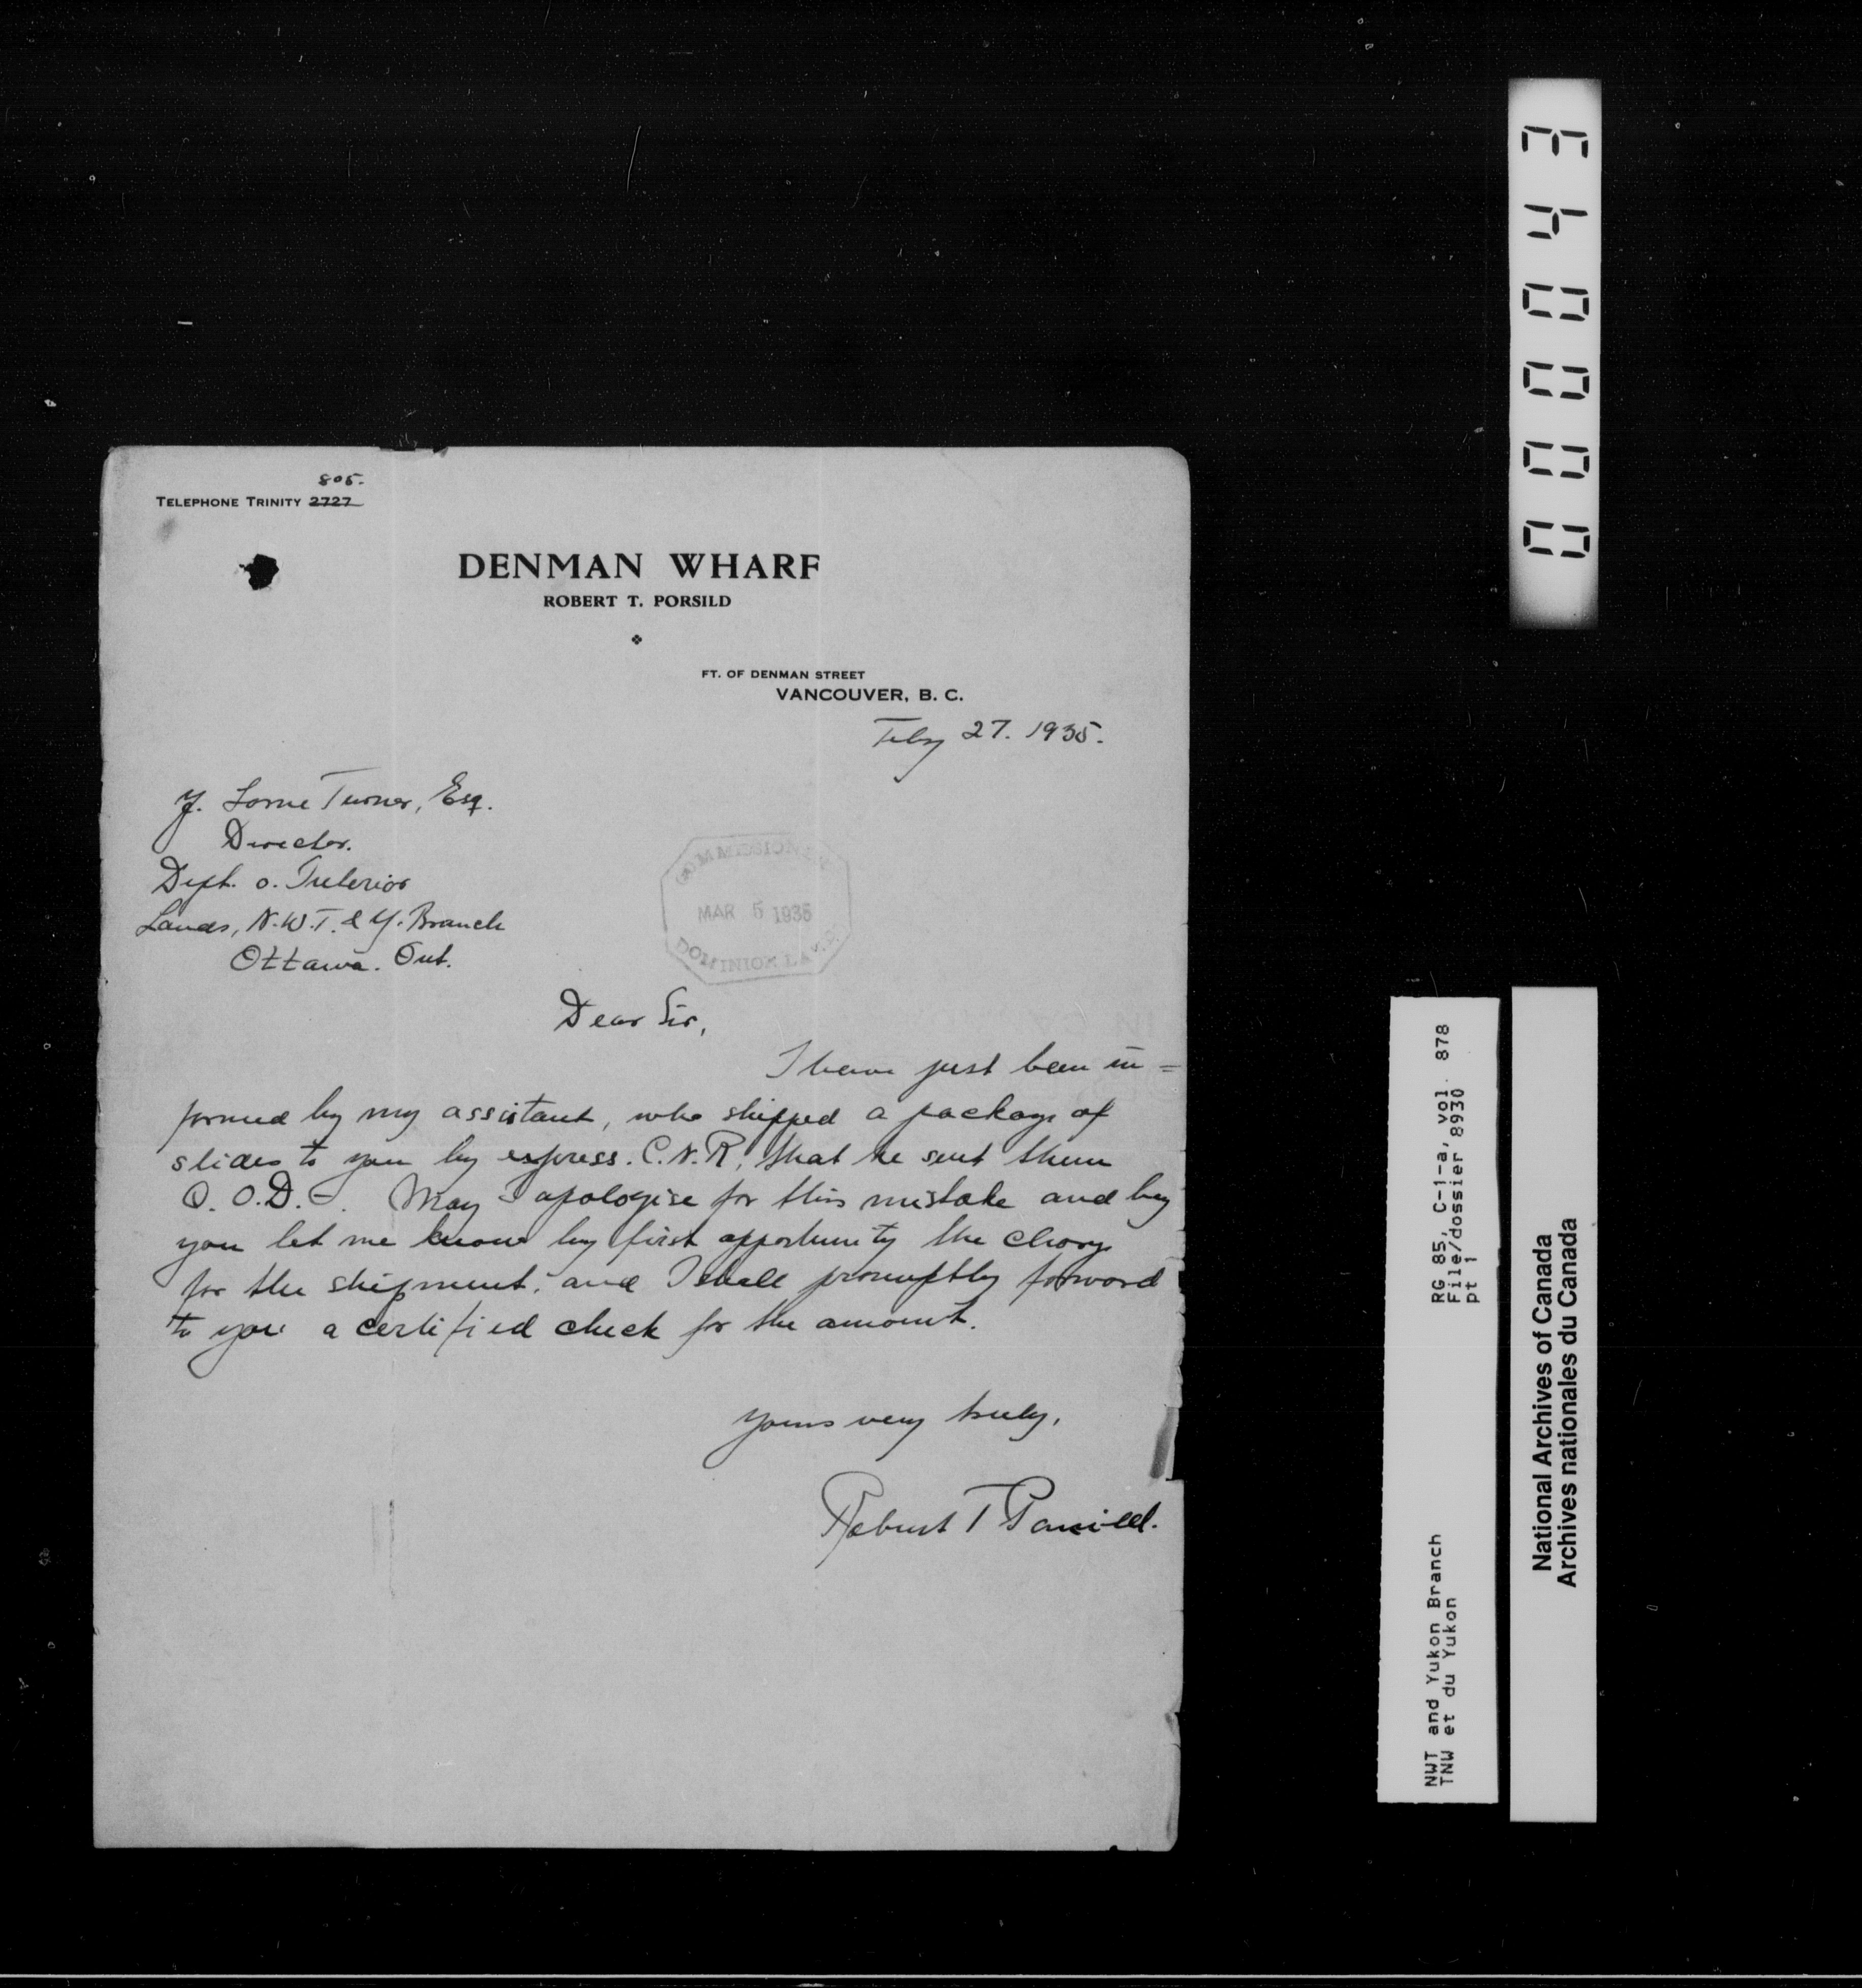 805.
TELEPHONE TRINITY 2727
DENMAN WHARF
ROBERT T. PORSILD
FT. OF DENMAN STREET
VANCOUVER, B. C.
Feby 27. 1935.
Y. Lorne Turner, Esq.
Director.
Dept. o. Interior
Lands, N.W.T. & Y. Branch
Ottawa. Ont.
COMMISSIONER
MAR 5 1935
DOMINION LANDS
Dear Sir,
I have just been in=
formed by my assistant, who shipped a package of
slides to you by express. C.N.R, that he sent them
C.O.D. May I apologise for this mistake and beg
you let me know by first opportunity the charge
for the shipment, and I shall promptly forward
to you a certified check for the amount.
Yours very truly,
Robert T Porsild.
000043
RG 85, C-1-a, vol. 878
File/dossier 8930
pt 1
NWT and Yukon Branch
TNW et du Yukon
National Archives of Canada
Archives nationales du Canada